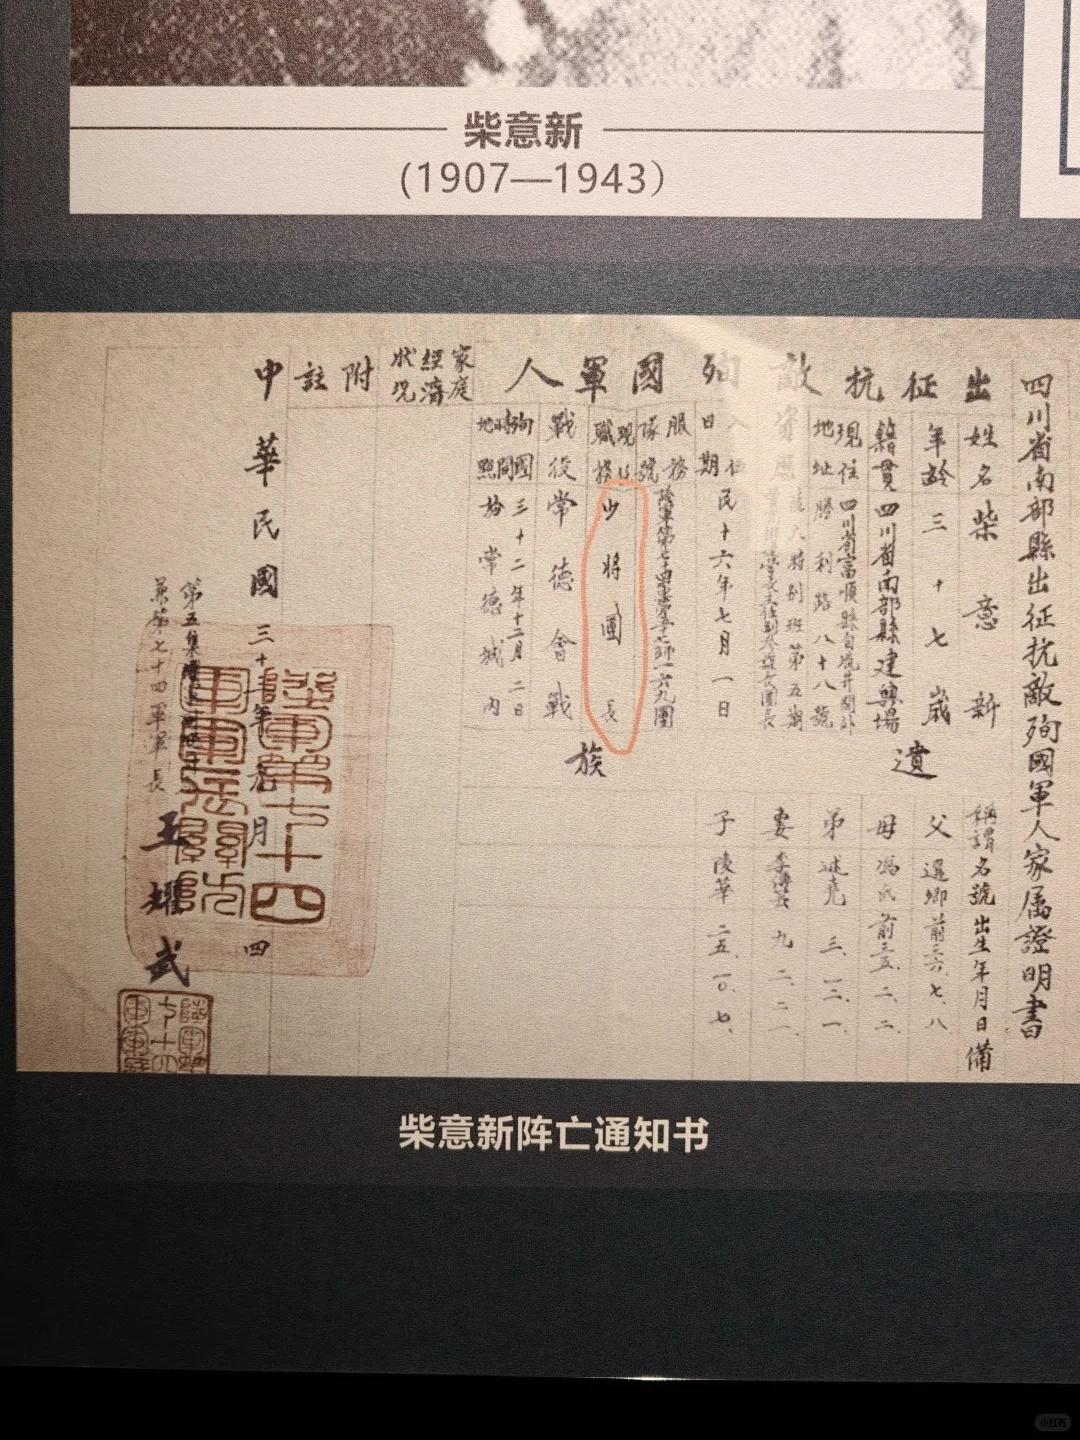 柴意新
(1907—1943)
四川省南部縣出征抗敵殉國軍人家属證明書
出征抗敵殉國軍人
姓名 柴意新
年齡 三十七歲
籍貫 四川省南部縣建興場
現住地址 四川省富順縣自流井關外勝利路八十八號
資歷
特別班第五期
入伍日期 民十六年七月一日
服務隊號 陸軍第七十四軍第五十七師一六九團
現任職務 少将團長
戰役 常德會戰
殉國時間地點 三十二年十二月二日於常德城內
家庭經濟狀況
附註
遺族
稱謂 名號 出生年月日 備
父 選卿 前三六、七、八
母 馮氏 前三五、二、二
弟 述堯 三、一二、一
妻 李 九、二、二一
子 陵華 二五、一〇、七、
中華民國三十三年 月 四
兼第七十四軍軍長 王耀武
陸軍第七十四軍軍長關防
柴意新阵亡通知书
小红书